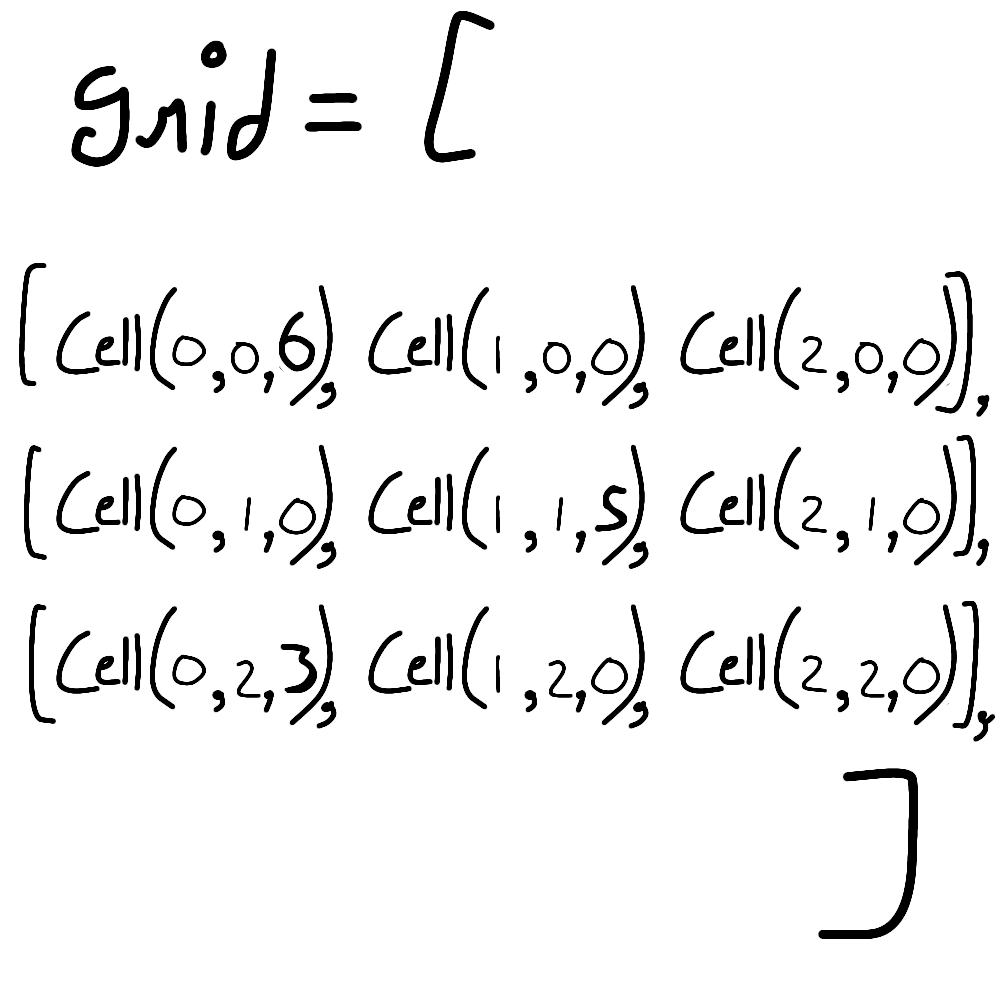 grid = [
[Cell(0,0,6), Cell(1,0,0), Cell(2,0,0)],
[Cell(0,1,0), Cell(1,1,5), Cell(2,1,0)],
[Cell(0,2,3), Cell(1,2,0), Cell(2,2,0)],
]